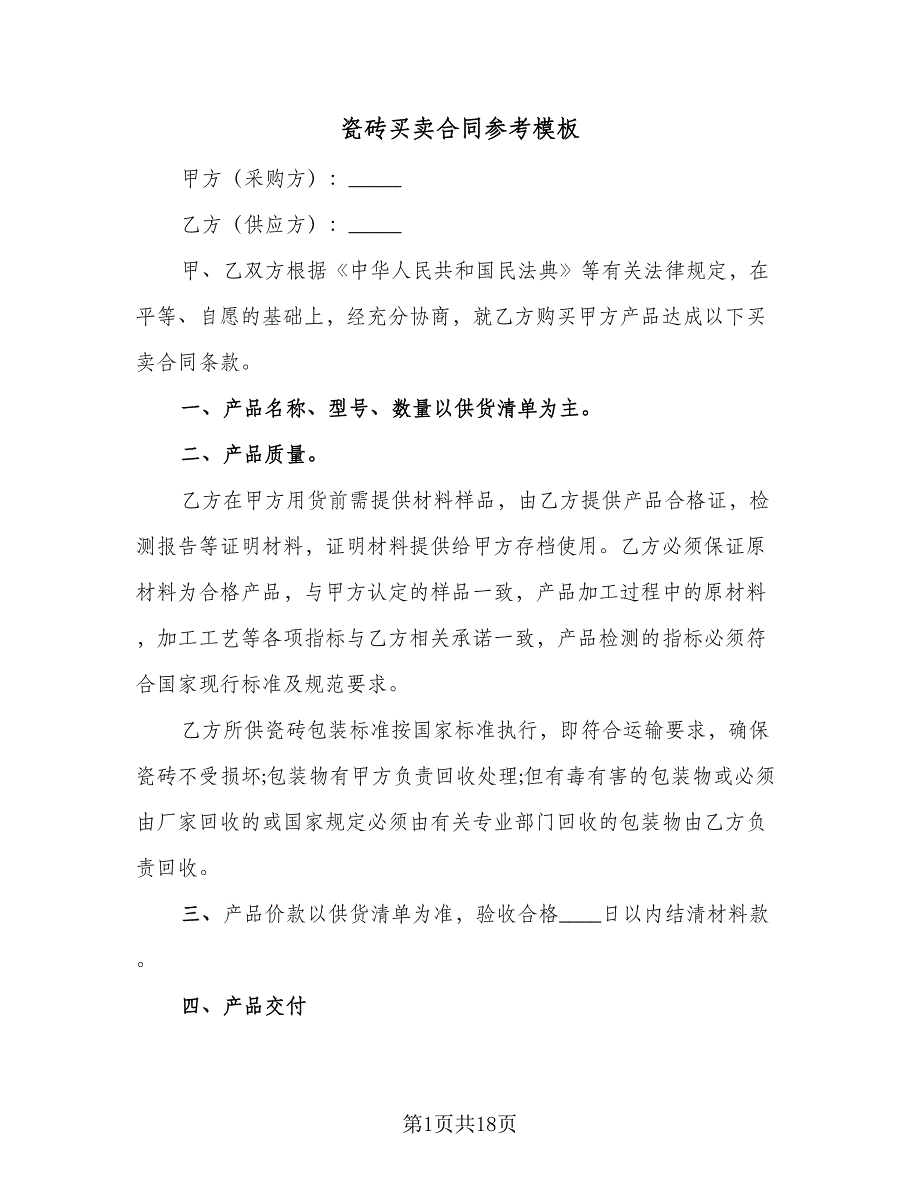 瓷砖买卖合同参考模板
甲方（采购方）：_____
乙方（供应方）：_____
甲、乙双方根据《中华人民共和国民法典》等有关法律规定，在
平等、自愿的基础上，经充分协商，就乙方购买甲方产品达成以下买
卖合同条款。
一、产品名称、型号、数量以供货清单为主。
二、产品质量。
乙方在甲方用货前需提供材料样品，由乙方提供产品合格证，检
测报告等证明材料，证明材料提供给甲方存档使用。乙方必须保证原
材料为合格产品，与甲方认定的样品一致，产品加工过程中的原材料
，加工工艺等各项指标与乙方相关承诺一致，产品检测的指标必须符
合国家现行标准及规范要求。
乙方所供瓷砖包装标准按国家标准执行，即符合运输要求，确保
瓷砖不受损坏;包装物有甲方负责回收处理;但有毒有害的包装物或必须
由厂家回收的或国家规定必须由有关专业部门回收的包装物由乙方负
责回收。
三、产品价款以供货清单为准，验收合格____日以内结清材料款
。
四、产品交付
第1页共18页